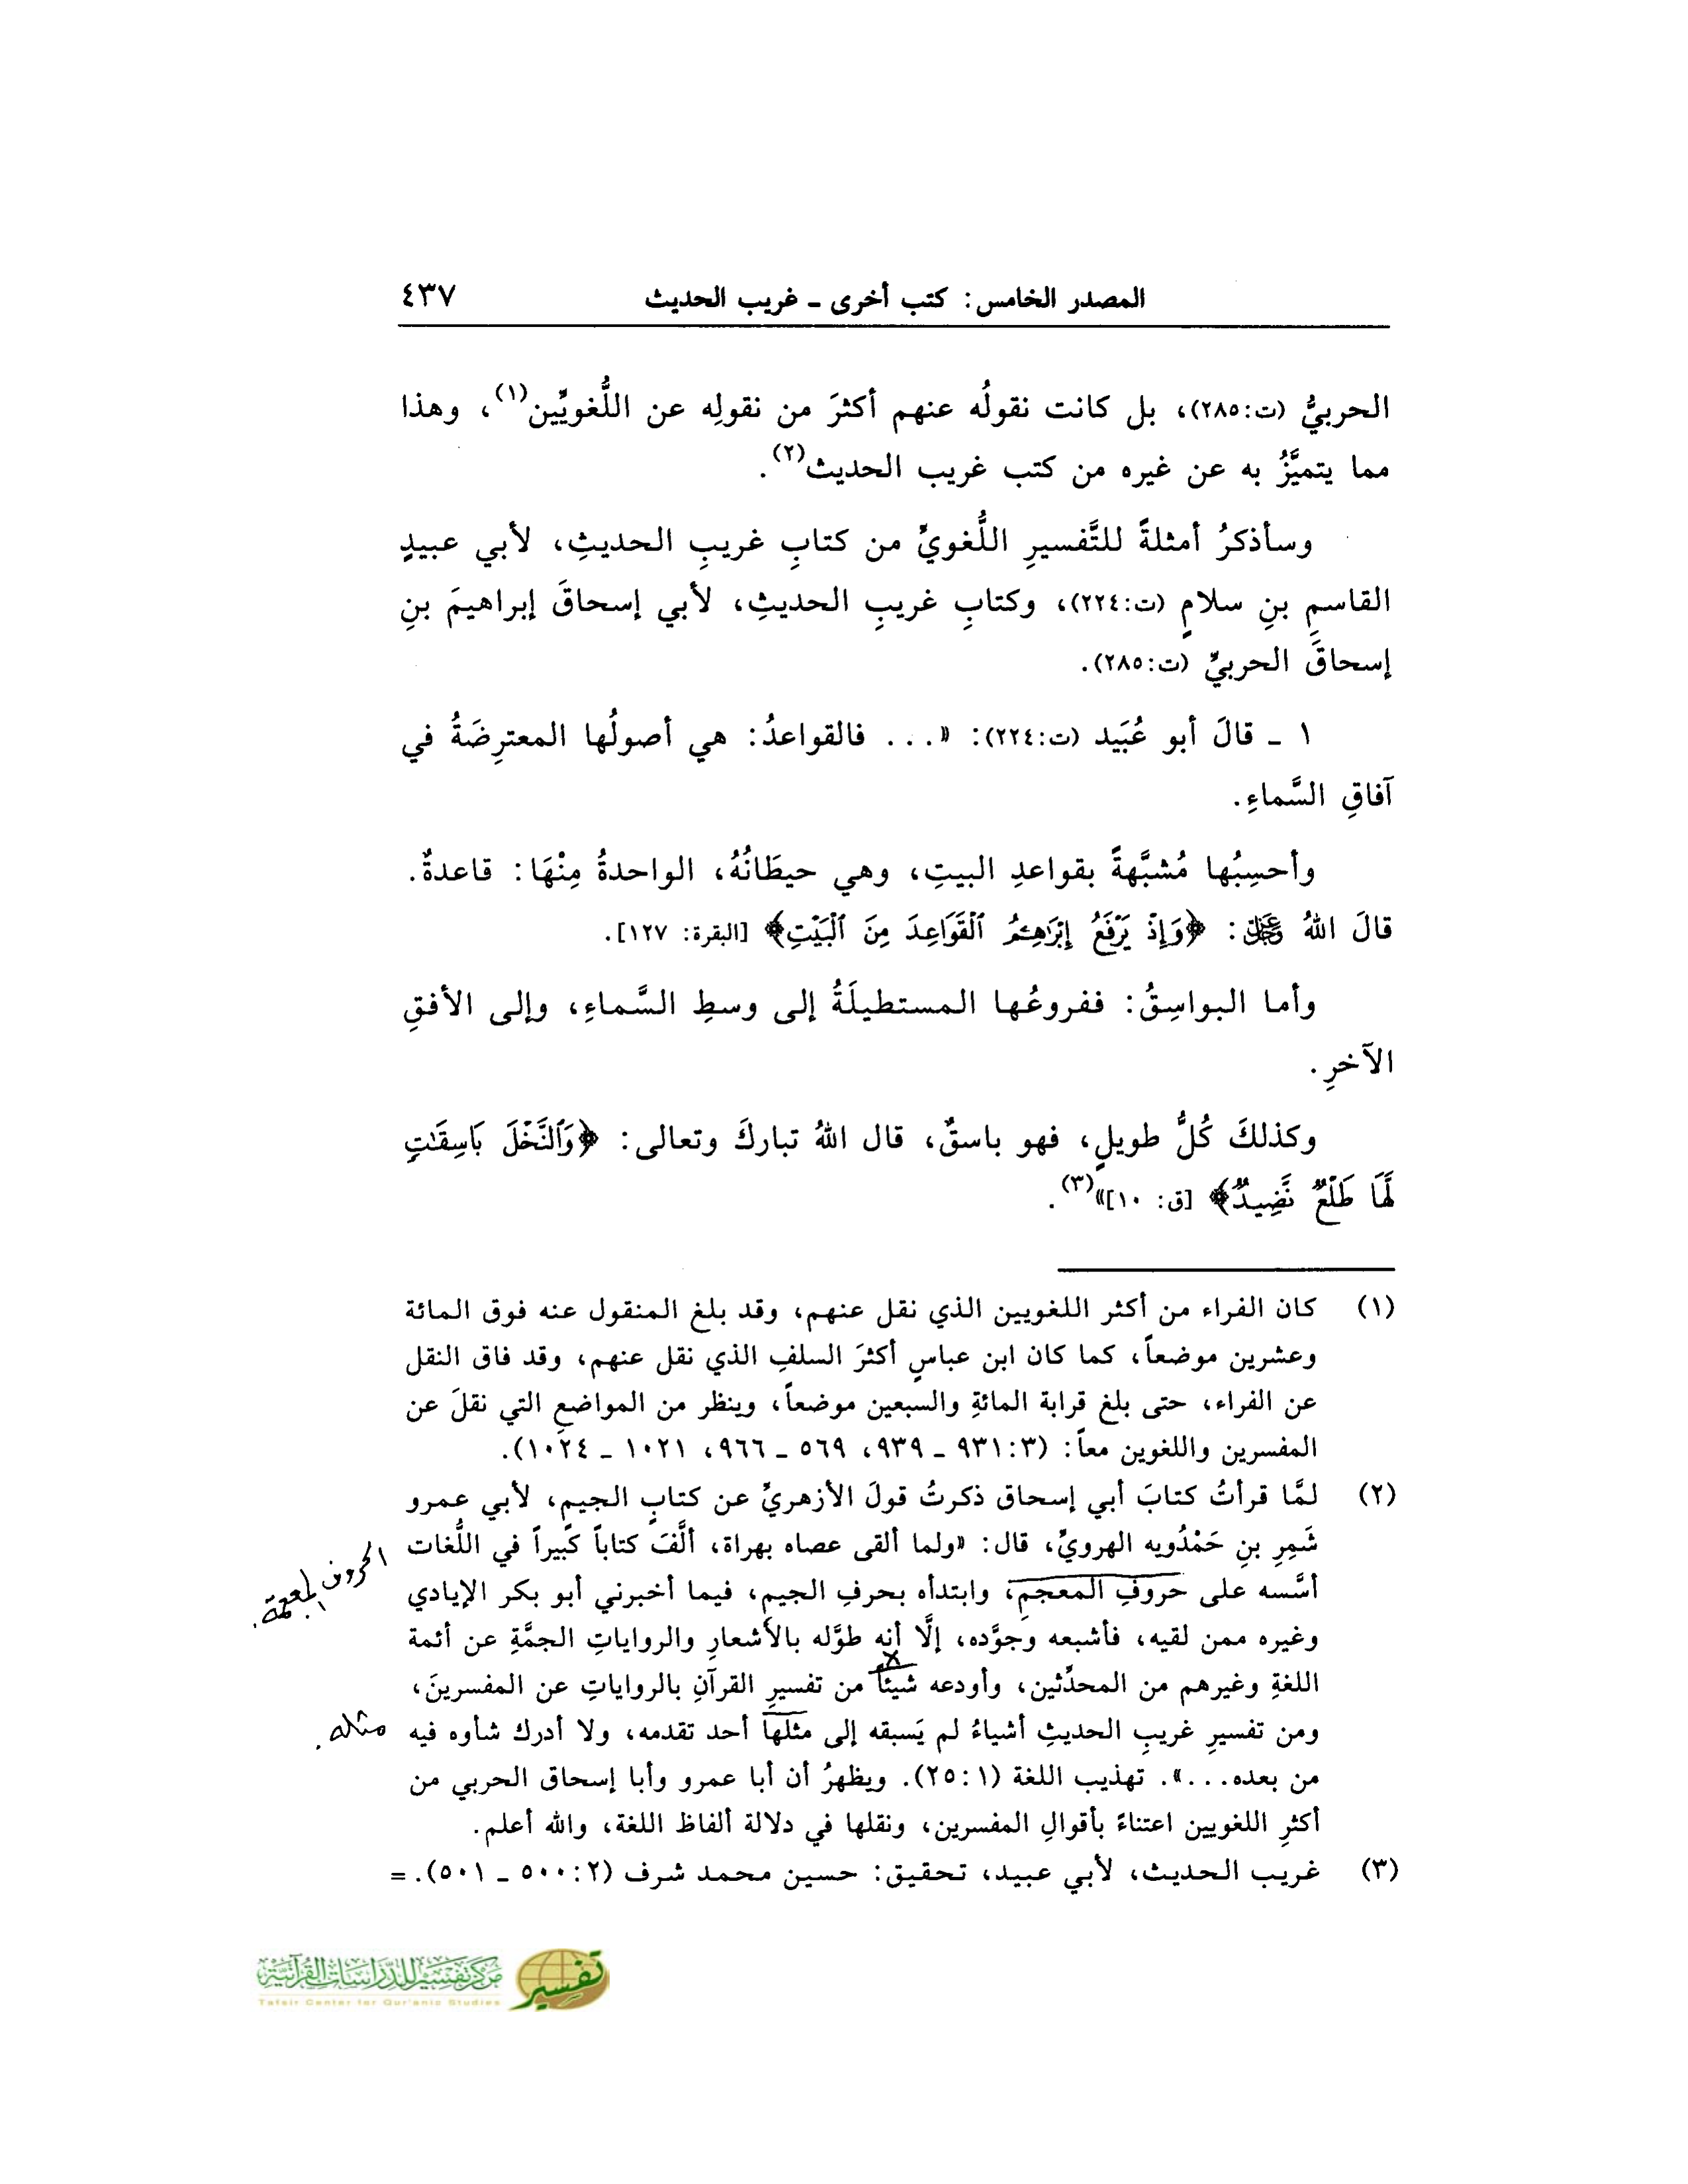 المصدر الخامس: كتب أخرى ـ غريب الحديث ٤٣٧
الحربيُّ (ت:٢٨٥)، بل كانت نقولُه عنهم أكثرَ من نقولِه عن اللُّغويِّين(١)، وهذا
مما يتميَّزُ به عن غيره من كتب غريب الحديث(٢).
وسأذكرُ أمثلةً للتَّفسيرِ اللُّغويِّ من كتابِ غريبِ الحديثِ، لأبي عبيدٍ
القاسمِ بنِ سلامٍ (ت:٢٢٤)، وكتابِ غريبِ الحديثِ، لأبي إسحاقَ إبراهيمَ بنِ
إسحاقَ الحربيِّ (ت:٢٨٥).
١ ـ قالَ أبو عُبَيد (ت:٢٢٤): «... فالقواعدُ: هي أصولُها المعترِضَةُ في
آفاقِ السَّماءِ.
وأحسِبُها مُشبَّهةً بقواعدِ البيتِ، وهي حيطَانُهُ، الواحدةُ مِنْهَا: قاعدةٌ.
قالَ اللهُ عَزَّ وَجَلَّ: ﴿وَإِذْ يَرْفَعُ إِبْرَٰهِـۧمُ ٱلْقَوَاعِدَ مِنَ ٱلْبَيْتِ﴾ [البقرة: ١٢٧].
وأما البواسِقُ: ففروعُها المستطيلَةُ إلى وسطِ السَّماءِ، وإلى الأفقِ
الآخرِ.
وكذلكَ كُلُّ طويلٍ، فهو باسقٌ، قال اللهُ تباركَ وتعالى: ﴿وَٱلنَّخْلَ بَاسِقَٰتٍ
لَّهَا طَلْعٌ نَّضِيدٌ﴾ [ق: ١٠]»(٣).
(١) كان الفراء من أكثر اللغويين الذي نقل عنهم، وقد بلغ المنقول عنه فوق المائة
وعشرين موضعاً، كما كان ابن عباسٍ أكثرَ السلفِ الذي نقل عنهم، وقد فاق النقل
عن الفراء، حتى بلغ قرابة المائةِ والسبعين موضعاً، وينظر من المواضعِ التي نقلَ عن
المفسرين واللغوين معاً: (٣:٩٣١ ـ ٩٣٩، ٥٦٩ ـ ٩٦٦، ١٠٢١ ـ ١٠٢٤).
(٢) لمَّا قرأتُ كتابَ أبي إسحاق ذكرتُ قولَ الأزهريِّ عن كتابِ الجيمِ، لأبي عمرو
شَمِرِ بنِ حَمْدُويه الهرويِّ، قال: «ولما ألقى عصاه بهراة، ألَّفَ كتاباً كبيراً في اللُّغات
أسَّسه على حروفِ المعجمِ، وابتدأه بحرفِ الجيمِ، فيما أخبرني أبو بكر الإيادي
الحروف المعجمة.
وغيره ممن لقيه، فأشبعه وجوَّده، إلَّا أنه طوَّله بالأشعارِ والرواياتِ الجمَّةِ عن أئمة
اللغةِ وغيرهم من المحدِّثين، وأودعه شيئاً من تفسيرِ القرآنِ بالرواياتِ عن المفسرينَ،
ومن تفسيرِ غريبِ الحديثِ أشياءُ لم يَسبقه إلى مثلها أحد تقدمه، ولا أدرك شأوه فيه
مثله.
من بعده...». تهذيب اللغة (١:٢٥). ويظهرُ أن أبا عمرو وأبا إسحاق الحربي من
أكثرِ اللغويين اعتناءً بأقوالِ المفسرين، ونقلها في دلالة ألفاظ اللغة، والله أعلم.
(٣) غريب الحديث، لأبي عبيد، تحقيق: حسين محمد شرف (٢:٥٠٠ ـ ٥٠١). =
تفسير
مركز تفسير للدراسات القرآنية
Tafsir Center for Qur'anic Studies